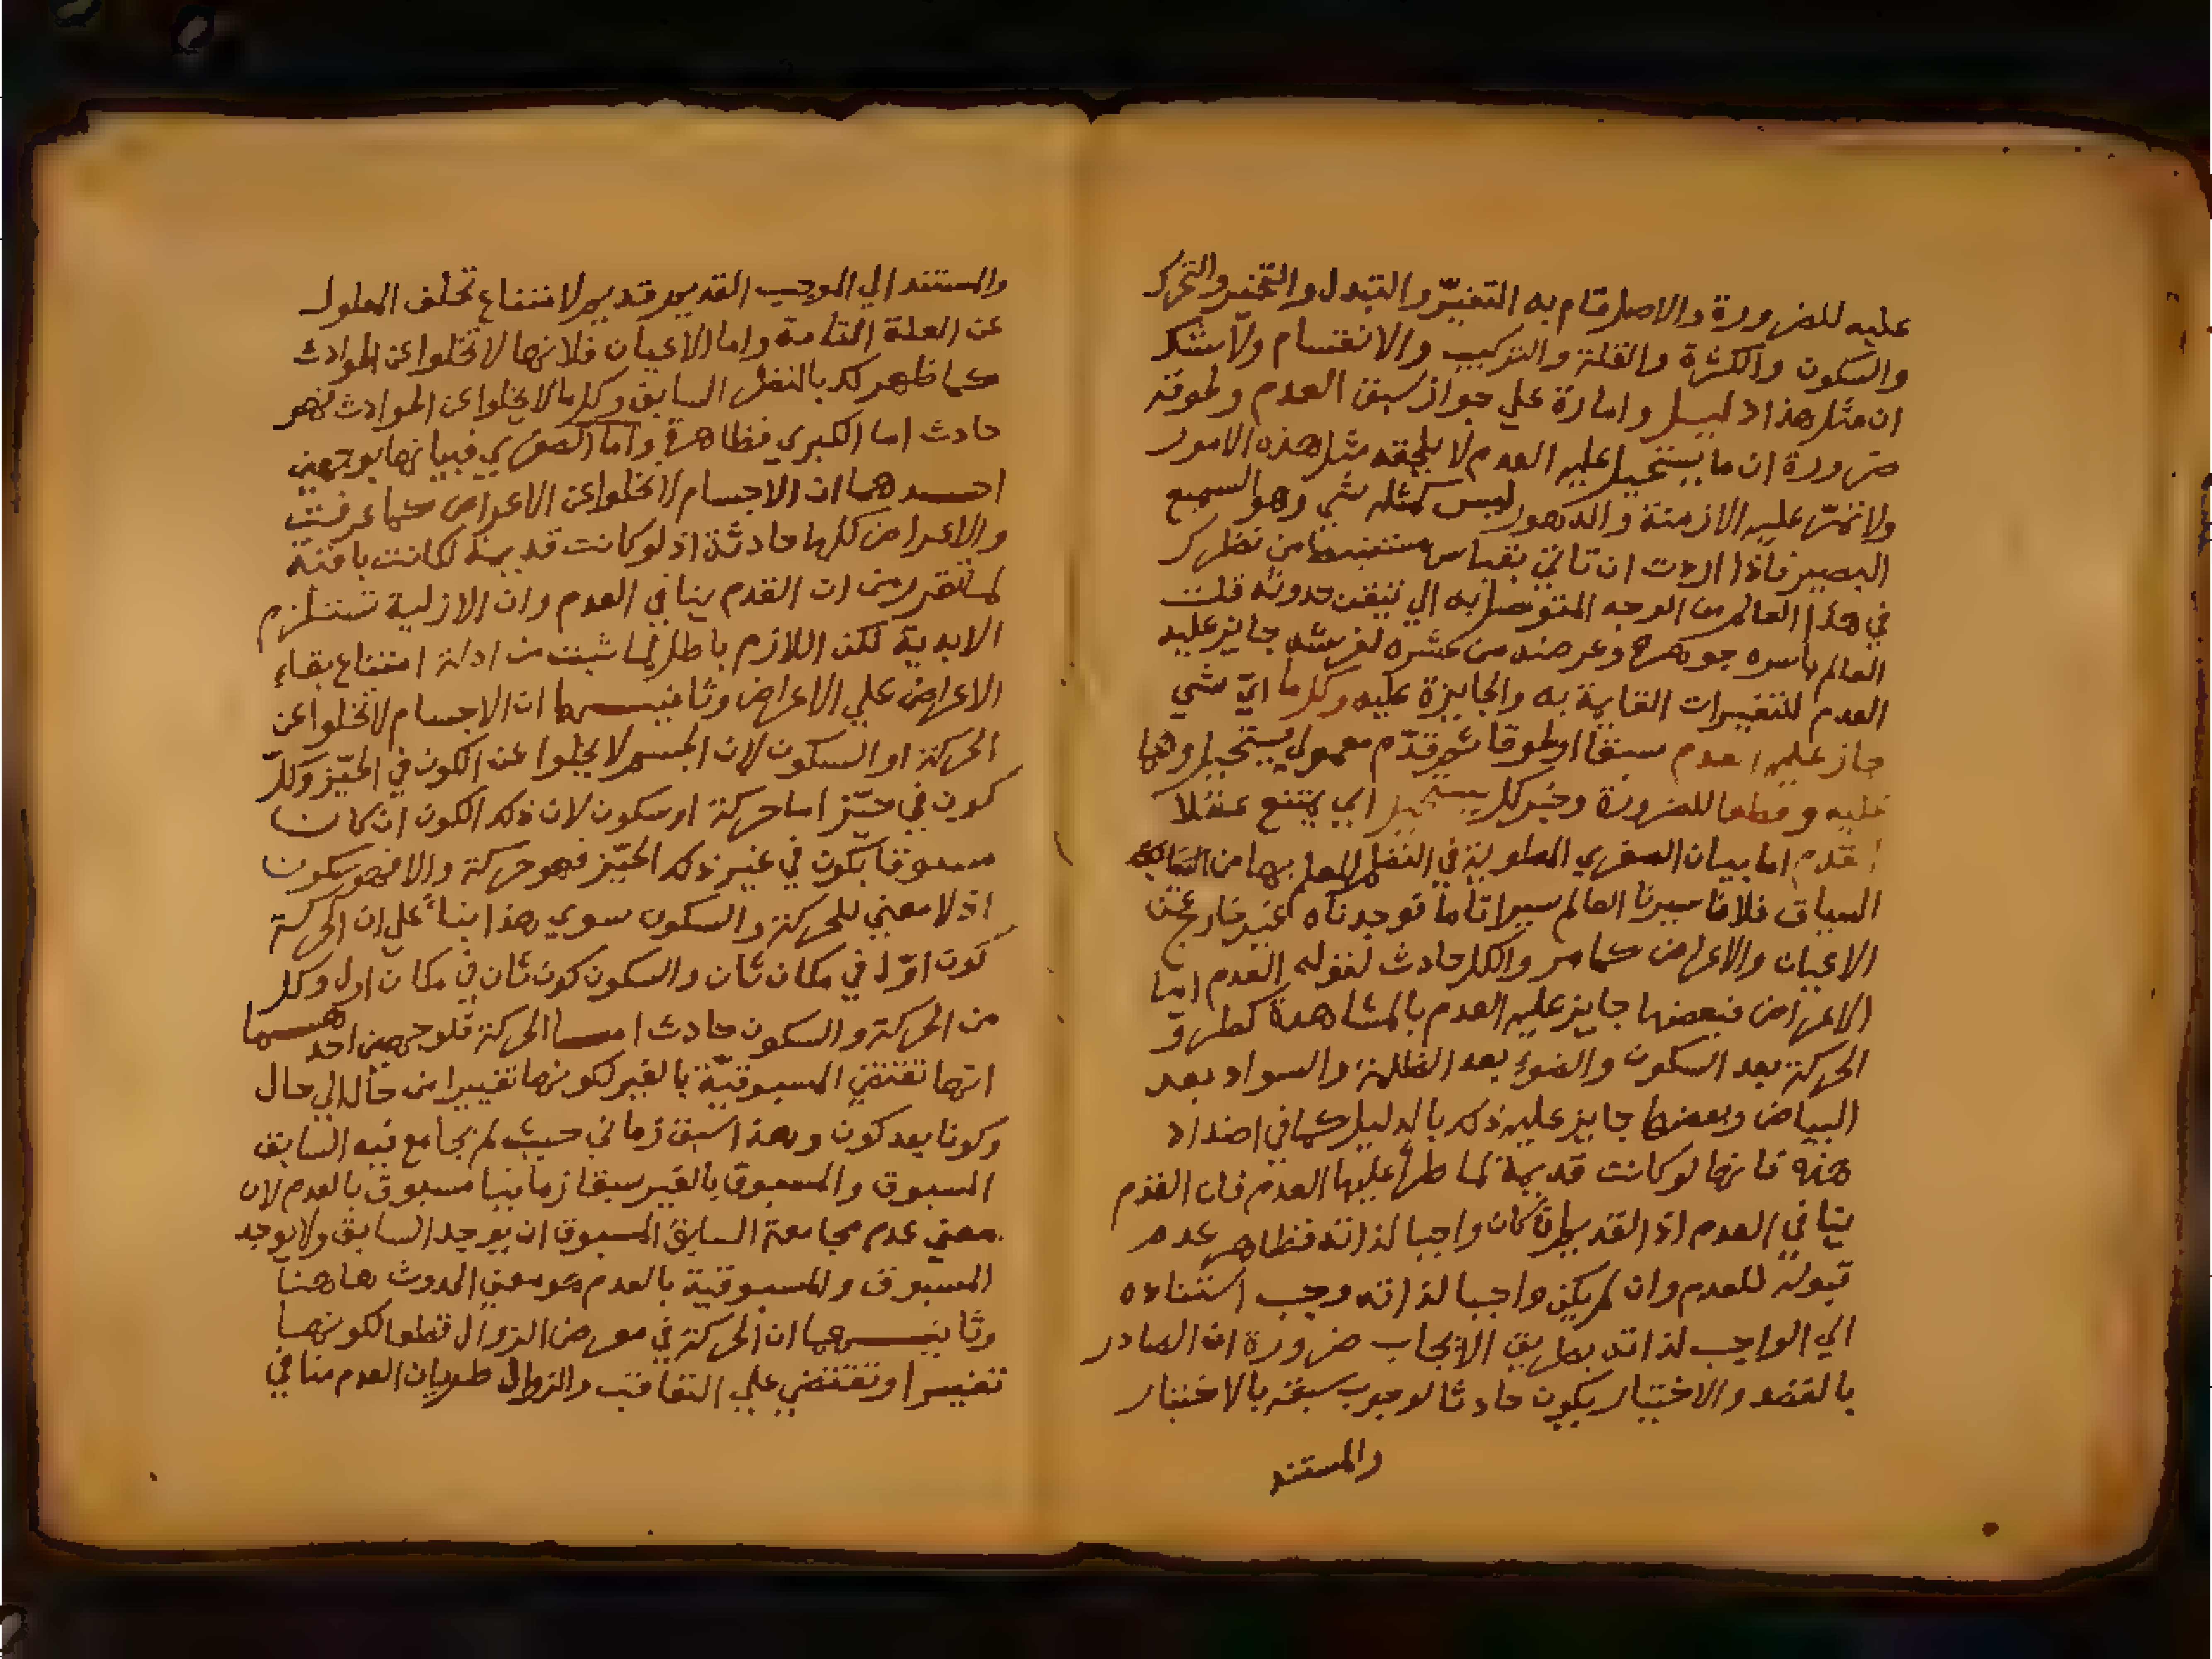 عليه للضرورة والاصل قام به التغيّر والتبدل والتحيز والتحرك
والسكون والكثرة والقلة والتركيب والانقسام ولا شك
ان مثل هذا دليل وامارة علي جواز سبق العدم ولحوقه
ضرورة ان ما يستحيل عليه العدم لا يلحقه مثل هذه الامور
ولا تمرّ عليه الازمنة والدهور ليس كمثله شي وهو السميع
البصير فاذا اردت ان تاتي بقياس من نظرك
في هذا العالم من الوجه المتوصل به الي تيقن حدوثه قلت
العالم باسره جوهره وعرضه من عشره لفرشه جايز عليه
العدم للتغييرات القايمة به والجايزة عليه وكل ما ايّ شي
جاز عليه العدم سبقا او لحوقا قدّم معمول يستحيل
عليه وقطعا للضرورة وخبر كل يستحيل ايي يمتنع عقلا
القدم اما بيان الصغري المطوية في النظم للعلم بها من
السياق فلانا سبرنا العالم سبرا تاما فوجدناه غير خارج عن
الاعيان والاعراض كما مر والكل حادث لقوله العدم اما
الاعراض فبعضها جايز عليه العدم بالمشاهدة كطرو
الحركة بعد السكون والضوء بعد الظلمة والسواد بعد
البياض وبعضها جايز عليه ذلك بالدليل كما في اضداد
هذه فانها لو كانت قديمة لما طرأ عليها العدم فان القدم
ينافي العدم اذ القديم ان كان واجبا لذاته فظاهر عدم
قبوله للعدم وان لم يكن واجبا لذاته وجب استناده
الي الواجب لذاته بطريق الايجاب ضرورة ان الصادر
بالقصد والاختيار يكون حادثا لوجوب سبقه بالاختيار
والمستند
والمستند الي الموجب القديم قديم لامتناع تخلف المعلول
عن العلة التامة واما الاعيان فلانها لا تخلوا عن الحوادث
كما ظهر لك بالنظر السابق وكل ما لا يخلوا عن الحوادث فهو
حادث اما الكبري فظاهرة واما الصغري فبيانها بوجهين
احدهما ان الاجسام لا تخلوا عن الاعراض كما عرفت
والاعراض كلها حادثة اذ لو كانت قديمة لكانت باقية
لما تقرر من ان القدم ينافي العدم وان الازلية تستلزم
الابدية لكن اللازم باطل لما ثبت من ادلة امتناع بقاء
الاعراض علي الاعراض وثانيهما ان الاجسام لا تخلوا عن
الحركة او السكون لان الجسم لا يخلوا عن الكون في الحيّز وكلّ
كون في حيّز اما حركة او سكون لان ذلك الكون ان كان
مسبوقا بكون في غير ذلك الحيّز فهو حركة والا فهو سكون
اذ لا معني للحركة والسكون سوي هذا بناءً علي ان الحركة
كون اوّل في مكان ثان والسكون كون ثان في مكان اول وكل
من الحركة والسكون حادث اما الحركة فلوجهين احدهما
انها تقتضي المسبوقيّة بالغير لكونها تغييرا من حال الي حال
وكونا بعد كون وهذا سبق زماني حيث لم يجامع فيه السابق
المسبوق والمسبوق بالغير سبقا زمانيا مسبوق بالعدم لان
معني عدم مجامعة السابق المسبوق ان يوجد السابق ولا يوجد
المسبوق والمسبوقية بالعدم هو معني الحدوث هاهنا
وثانيهما ان الحركة في معرض الزوال قطعا لكونها
تغييرا وتقتضي علي التعاقب والزوال طريان العدم منافي